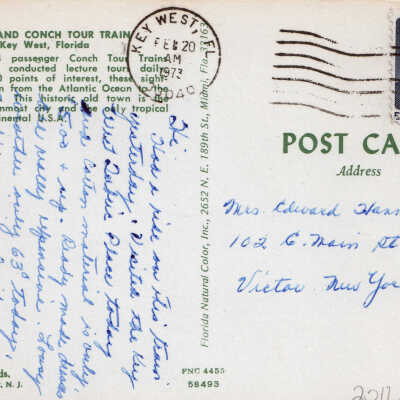 AND CONCH TOUR TRAIN
Key West, Florida
passenger Conch Tour Trains
conducted lecture tours daily
0 points of interest, these sight-
from the Atlantic Ocean to the
This historic old town is the
nmost city and the only tropical
inental U.S.A.
KEY WEST, FL
FEB 20
AM
1973
Hi.
Had a ride on this train
yesterday. Visited the Key
West Fabric Place today
Cotton material is only
Ready made dresses
are really expensive. Lovely
weather only 63° today.
Florida Natural Color, Inc., 2652 N. E. 189th St., Miami, Fla. 33163
POST CA
Address
Mrs. Edward Hans
102 E. Main St
Victor New Yor
ds.
, N. J.
FNC 4455
58493